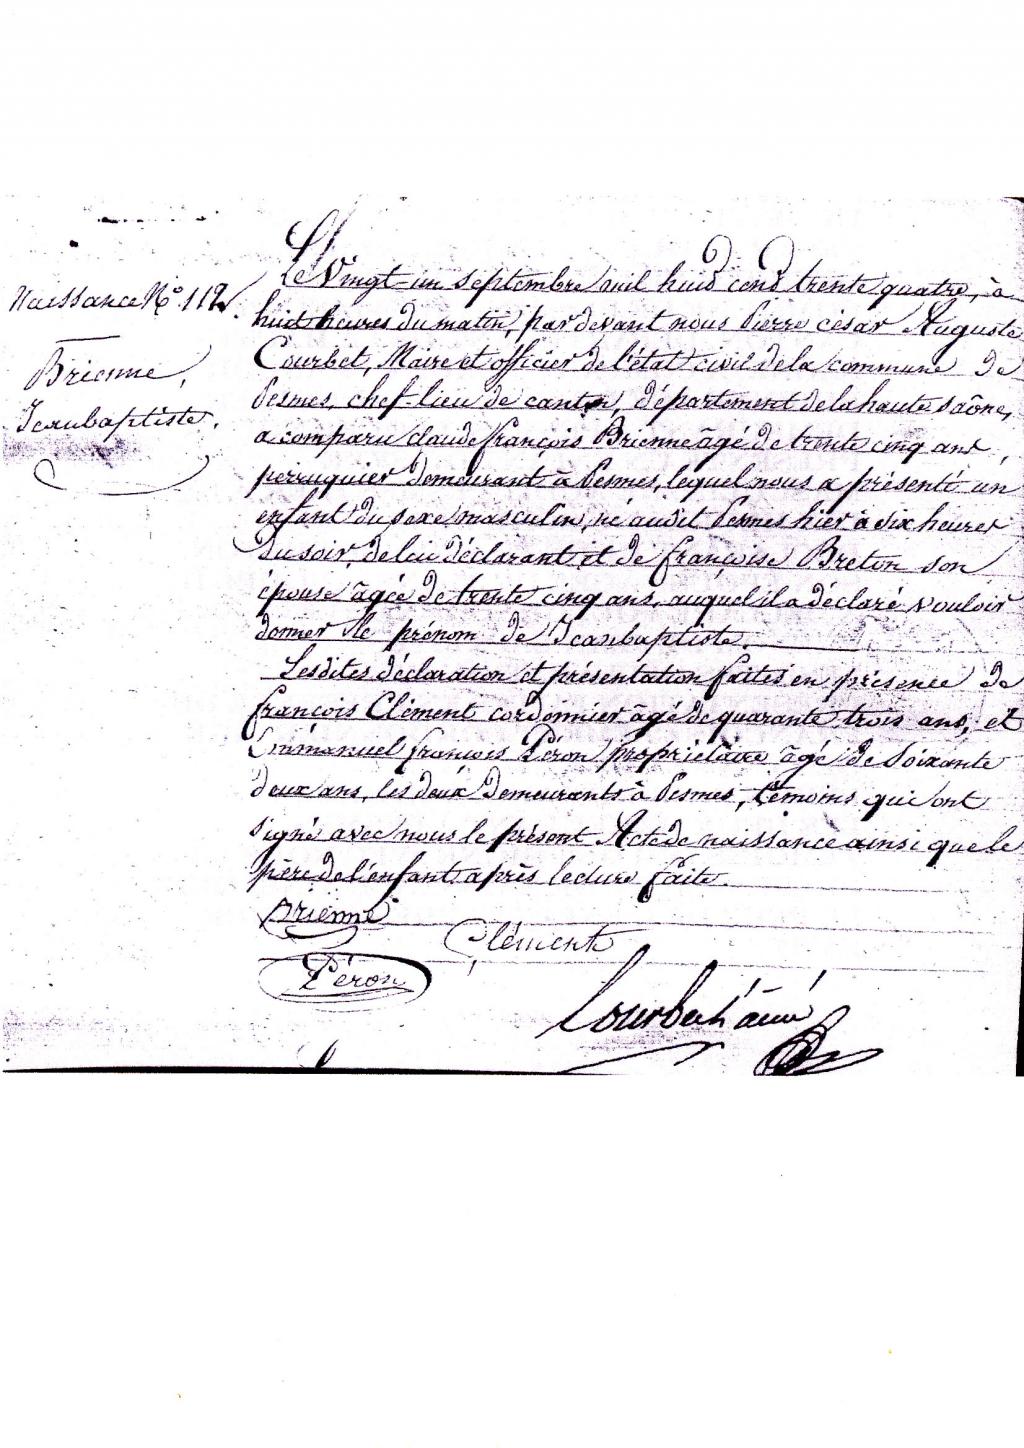 Naissance N.º 112.
Brienne,
Jeanbaptiste.
Le vingt-un septembre mil huit cent trente quatre, à
huit heures du matin, par devant nous Pierre césar Auguste
Courbet, Maire et officier de l'état civil de la commune de
Pesmes, chef-lieu de canton, département de la haute saône,
a comparu claude françois Brienne âgé de trente cinq ans,
perruquier demeurant à Pesmes, lequel nous a présenté un
enfant du sexe masculin, né audit Pesmes hier à six heures
du soir, de lui déclarant et de françoise Breton son
épouse âgée de trente cinq ans, auquel il a déclaré vouloir
donner le prénom de Jeanbaptiste.
Lesdites déclaration et présentation faites en présence de
françois Clément cordonnier âgé de quarante trois ans, et
Emmanuel françois Péron propriétaire âgé de soixante
deux ans, les deux demeurants à Pesmes, témoins qui ont
signé avec nous le présent Acte de naissance ainsi que le
père de l'enfant après lecture faite.
Brienne
Clément
Péron
Courbet l'ainé